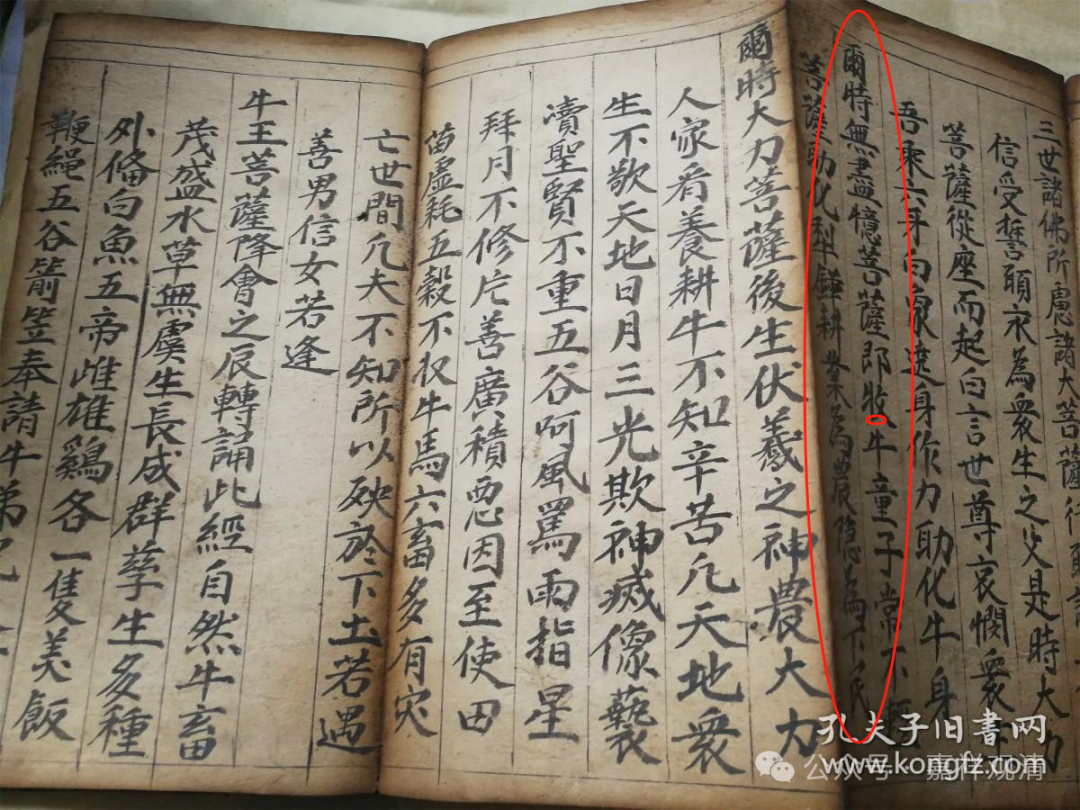 三世諸佛所慮諸大菩薩行
信受誓願永為衆生之父是時大力
菩薩從座而起白言世尊哀憫衆
吾乘六牙白象遶身作力助化牛身
爾時無盡憶菩薩即牧牛童子常不
菩薩助化犁鏵耕 為農 為
爾時大力菩薩後生伏羲之神農大力
人家肴養耕牛不知辛苦凢天地衆
生不敬天地日月三光欺神滅像藝
瀆聖賢不重五谷呵風罵雨指星
拜月不修片善廣積惡因至使田
苗虛耗五穀不収牛馬六畜多有灾
亡世間凢夫不知所以殃於下土若遇
善男信女若逢
牛王菩薩降會之辰轉誦此經自然牛畜
茂盛水草無虞生長成群孳生多種
外備白魚五帝雌雄鷄各一隻美飯
鞭繩五谷箭笠奉請牛
孔夫子旧书网
www.kongfz.com
公众号·嘉祥观清